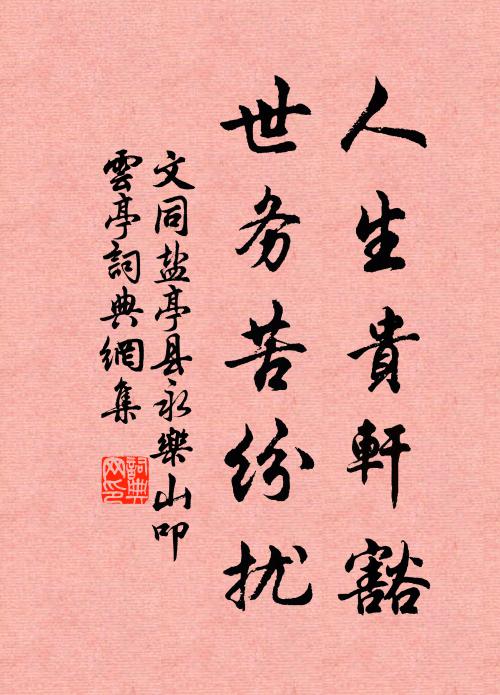 人生貴軒豁
世务苦纷扰
文同盐亭县永樂山叩
雲亭詞典網集
詞典网印